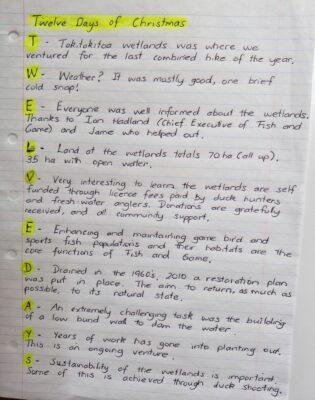 Twelve Days of Christmas
T - Tokitokitoa wetlands was where we
ventured for the last combined hike of the year.
W - Weather? It was mostly good, one brief
cold snap!
E - Everyone was well informed about the wetlands.
Thanks to Ian Hadland (Chief Executive of Fish and
Game) and Jame who helped out.
L - Land at the wetlands totals 70 ha (all up).
35 ha with open water.
V - Very interesting to learn the wetlands are self
funded through licence fees paid by duck hunters
and fresh-water anglers. Donations are gratefully
received, and all community support.
E - Enhancing and maintaining game bird and
sports fish populations and their habitats are the
core functions of Fish and Game.
D - Drained in the 1960's, 2010 a restoration plan
was put in place. The aim to return, as much as
possible, to its natural state.
A - An extremely challenging task was the building
of a low bund wall to dam the water.
Y - Years of work has gone into planting out.
This is an ongoing venture.
S - Sustainability of the wetlands is important.
Some of this is achieved through duck shooting.